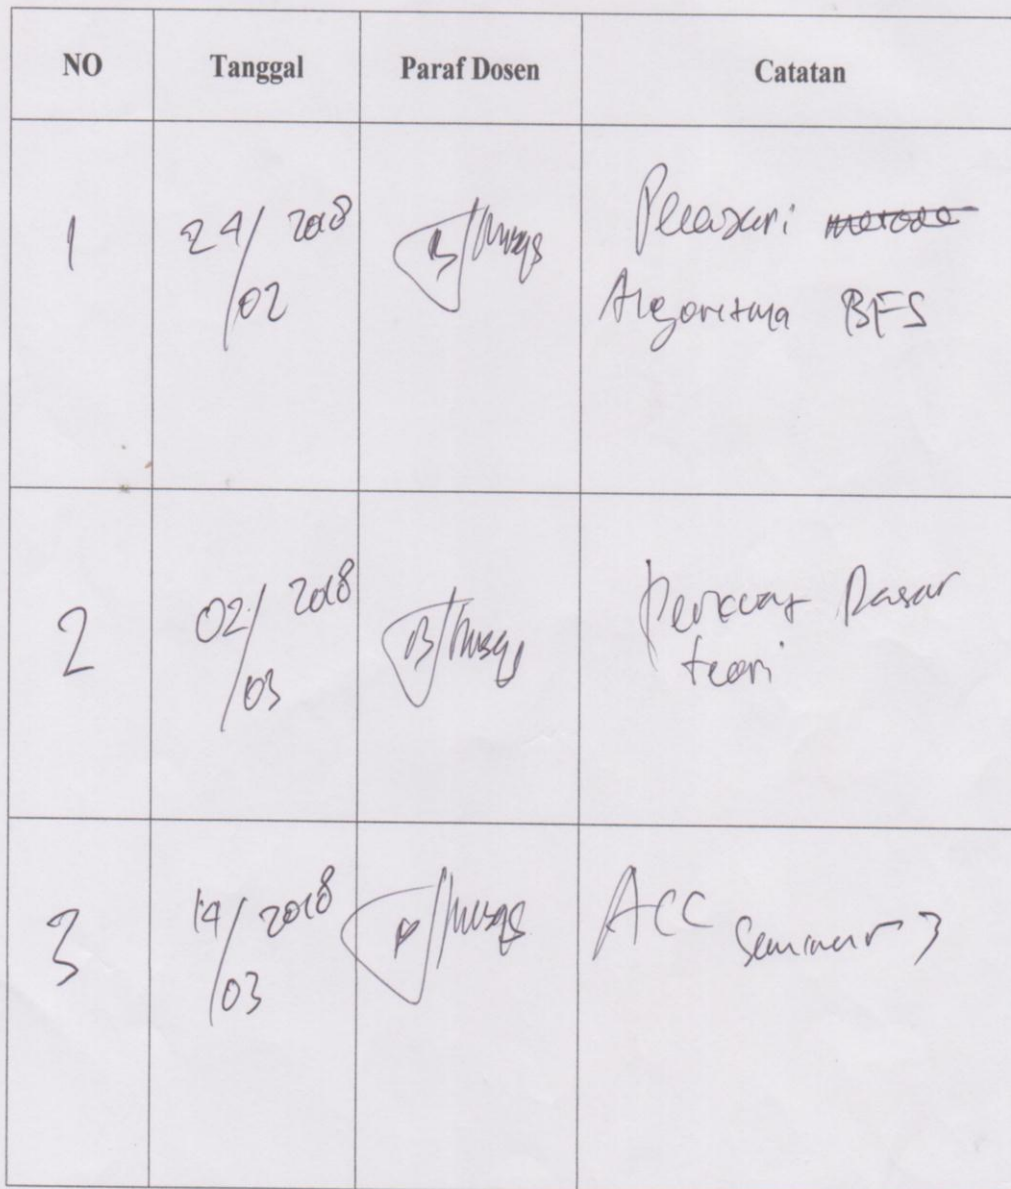 NO Tanggal Paraf Dosen Catatan
1 24/02 2018 Pelajari metode
Algoritma BFS
2 02/03 2018 Perkuat Dasar
teori
3 14/03 2018 ACC Seminar 3